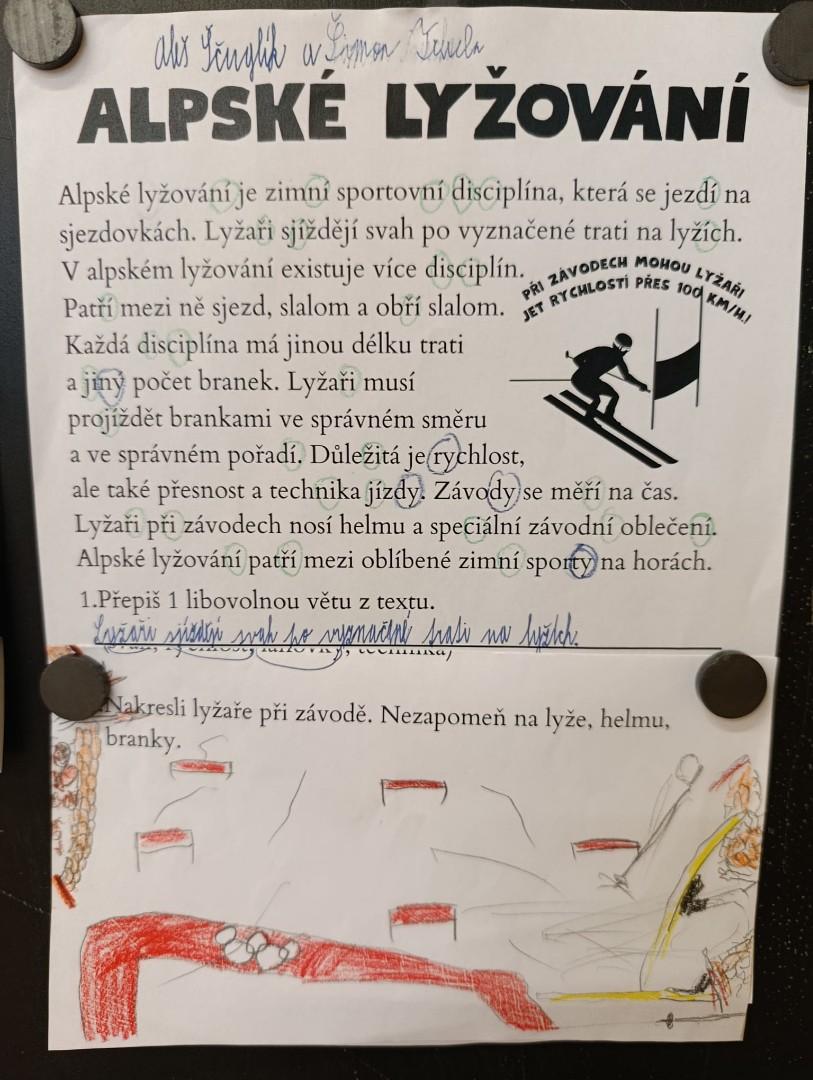 Aleš a Šimon
ALPSKÉ LYŽOVÁNÍ
Alpské lyžování je zimní sportovní disciplína, která se jezdí na
sjezdovkách. Lyžaři sjíždějí svah po vyznačené trati na lyžích.
V alpském lyžování existuje více disciplín.
Patří mezi ně sjezd, slalom a obří slalom.
Každá disciplína má jinou délku trati
a jiný počet branek. Lyžaři musí
projíždět brankami ve správném směru
a ve správném pořadí. Důležitá je rychlost,
ale také přesnost a technika jízdy. Závody se měří na čas.
Lyžaři při závodech nosí helmu a speciální závodní oblečení.
Alpské lyžování patří mezi oblíbené zimní sporty na horách.
PŘI ZÁVODECH MOHOU LYŽAŘI
JET RYCHLOSTÍ PŘES 100 KM/H!
1.Přepiš 1 libovolnou větu z textu.
Lyžaři sjíždějí svah po vyznačené trati na lyžích.
Nakresli lyžaře při závodě. Nezapomeň na lyže, helmu,
branky.